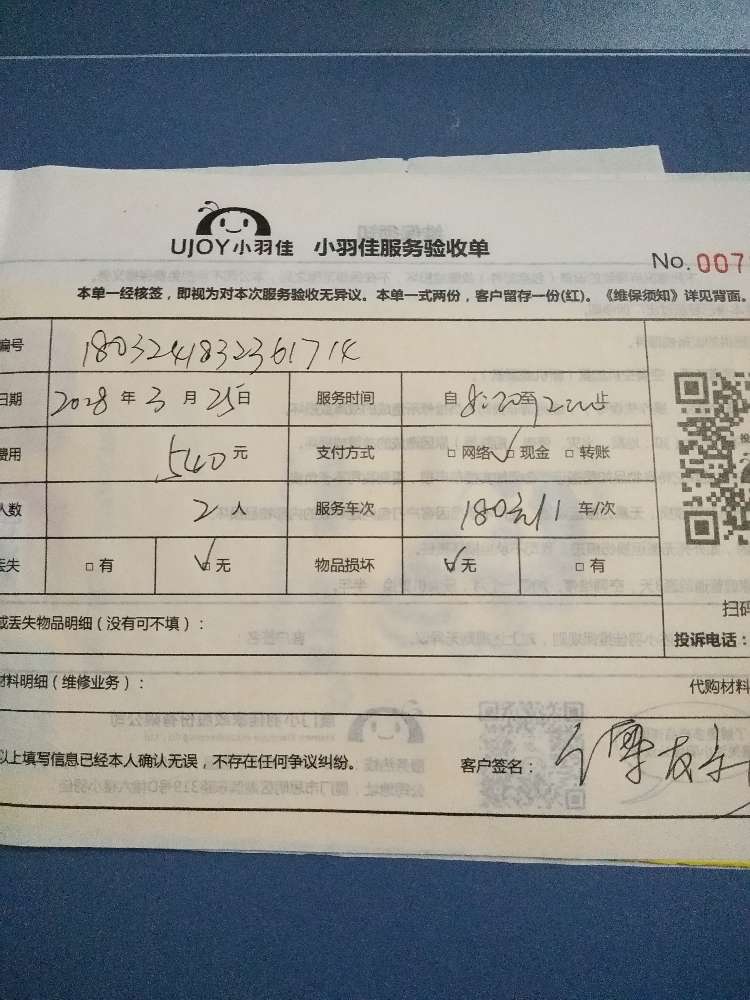 UJOY小羽佳 小羽佳服务验收单
No. 007
本单一经核签，即视为对本次服务验收无异议。本单一式两份，客户留存一份(红)。《维保须知》详见背面。
编号 1803241832361714
日期 2028 年 3 月 25 日 服务时间 自 8:20 至 12:00 止
费用 540 元 支付方式 □ 网络 □ 现金 □ 转账
人数 2 人 服务车次 180元/1 车/次
丢失 □ 有 □ 无 物品损坏 □ 无 □ 有
或丢失物品明细（没有可不填）：
扫码
投诉电话：
材料明细（维修业务）： 代购材料
以上填写信息已经本人确认无误，不存在任何争议纠纷。 客户签名：